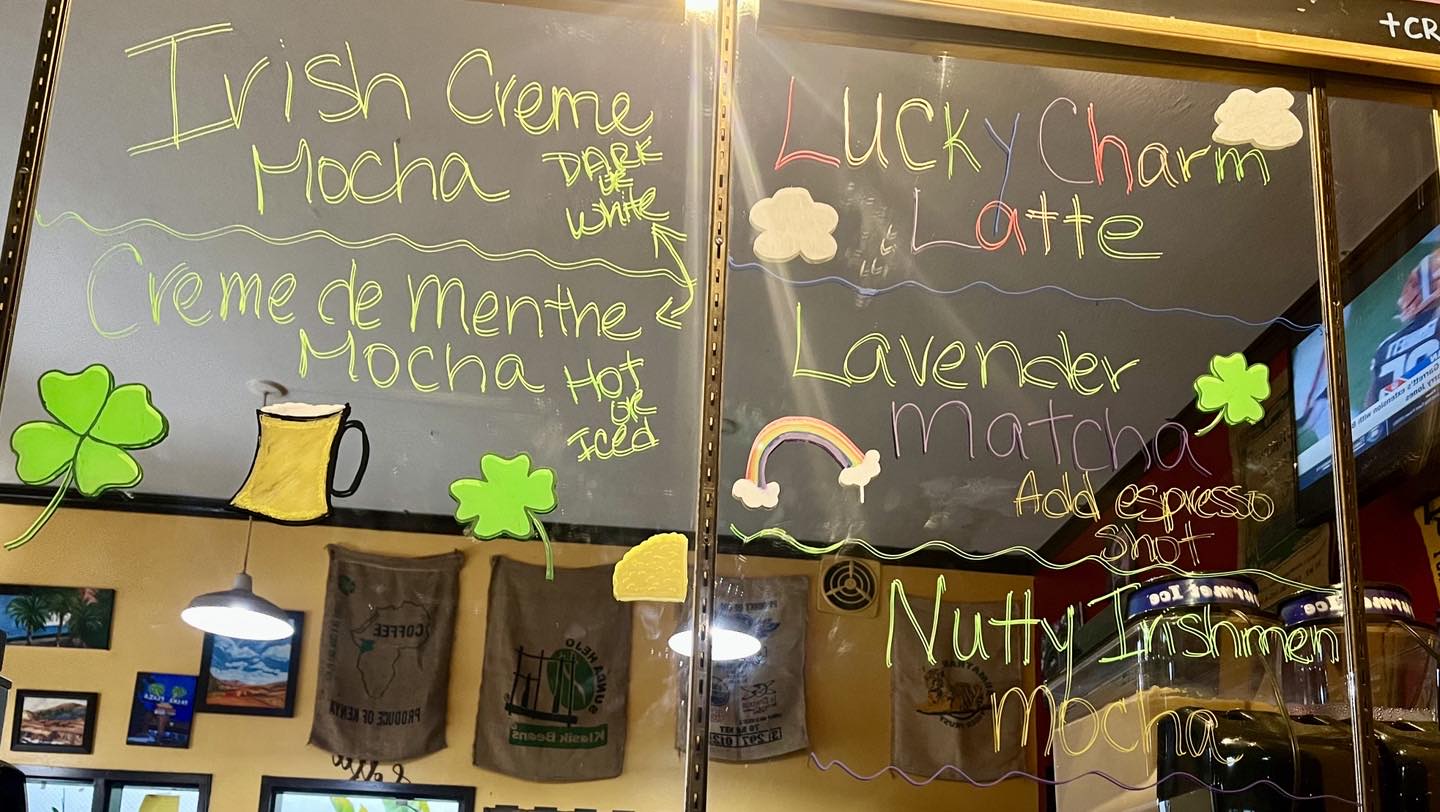 Irish Creme
Mocha
DARK
OR
White
Creme de Menthe
Mocha
HOT
OR
Iced
Lucky Charm
Latte
Lavender
Matcha
Add espresso
shot
Nutty Irishmen
mocha
+CR
COFFEE
PRODUCE OF KENYA
Klasik Beans